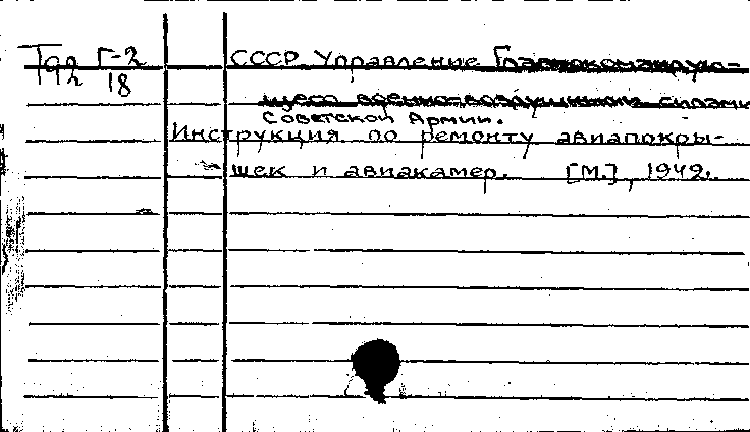 Г-2
18
СССР. Управление Главнокомандую-
щего военно-воздушными силами
Советской Армии.
Инструкция по ремонту авиапокры-
шек и авиакамер. [М.], 1942.